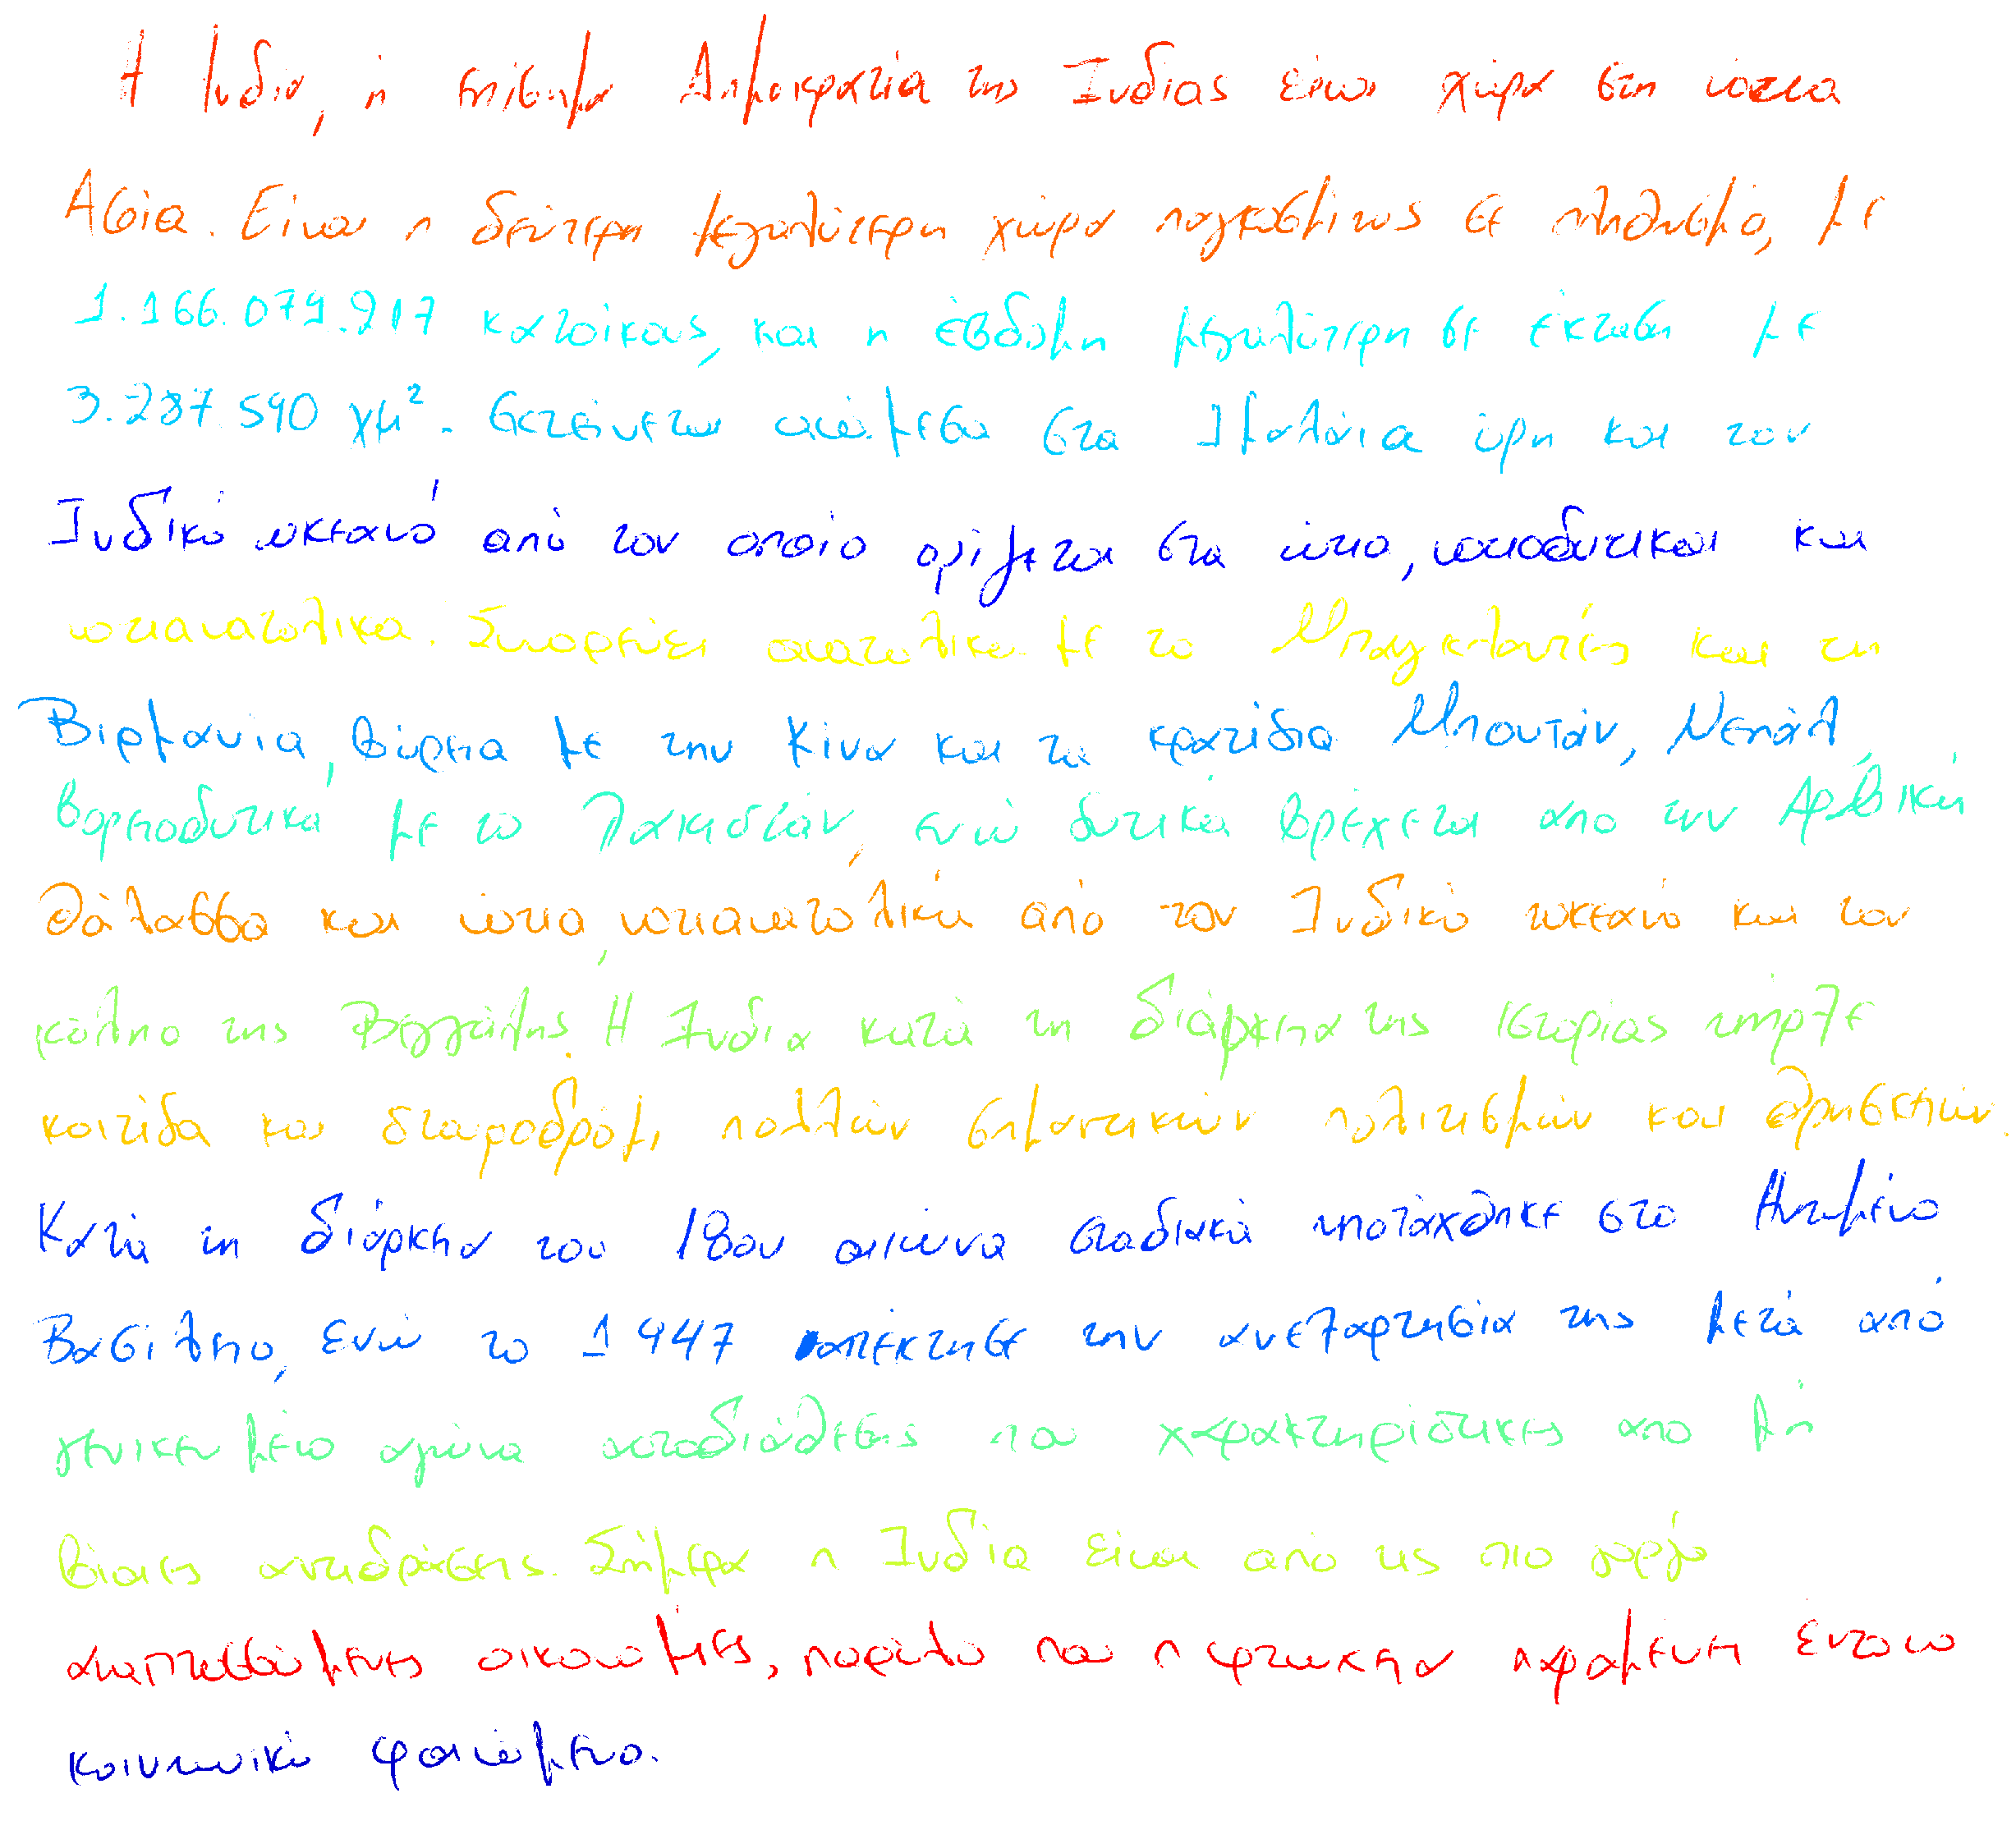 Η Ινδία, ή επίσημα Δημοκρατία της Ινδίας είναι χώρα στη νότια
Ασία. Είναι η δεύτερη μεγαλύτερη χώρα παγκοσμίως σε πληθυσμό, με
1.166.079.217 κατοίκους, και η έβδομη μεγαλύτερη σε έκταση με
3.287.590 χμ². Εκτείνεται ανάμεσα στα Ιμαλάια όρη και τον
Ινδικό ωκεανό από τον οποίο ορίζεται στα νότια, νοτιοδυτικά και
νοτιανατολικά. Συνορεύει ανατολικά με το Μπαγκλαντές και τη
Βιρμανία, βόρεια με την Κίνα και τα κρατίδια Μπουτάν, Νεπάλ,
βορειοδυτικά με το Πακιστάν, ενώ δυτικά βρέχεται απο την Αραβική
Θάλασσα και νότια, νοτιανατολικά από τον Ινδικό ωκεανό και τον
κόλπο της Βεγγάλης. Η Ινδία κατά τη διάρκεια της ιστορίας υπήρξε
κοιτίδα και σταυροδρόμι πολλών σημαντικών πολιτισμών και θρησκειών.
Κατά τη διάρκεια του 18ου αιώνα σταδιακά υποτάχθηκε στο Ηνωμένο
Βασίλειο, ενώ το 1947 απέκτησε την ανεξαρτησία της μετά από
γενικευμένο αγώνα αυτοδιάθεσης που χαρακτηρίστηκε απο μή
βίαιες αντιδράσεις. Σήμερα η Ινδία είναι από τις πιο γοργά
αναπτυσσόμενες οικονομίες, παρόλο που η φτώχεια παραμένει έντονο
κοινωνικό φαινόμενο.